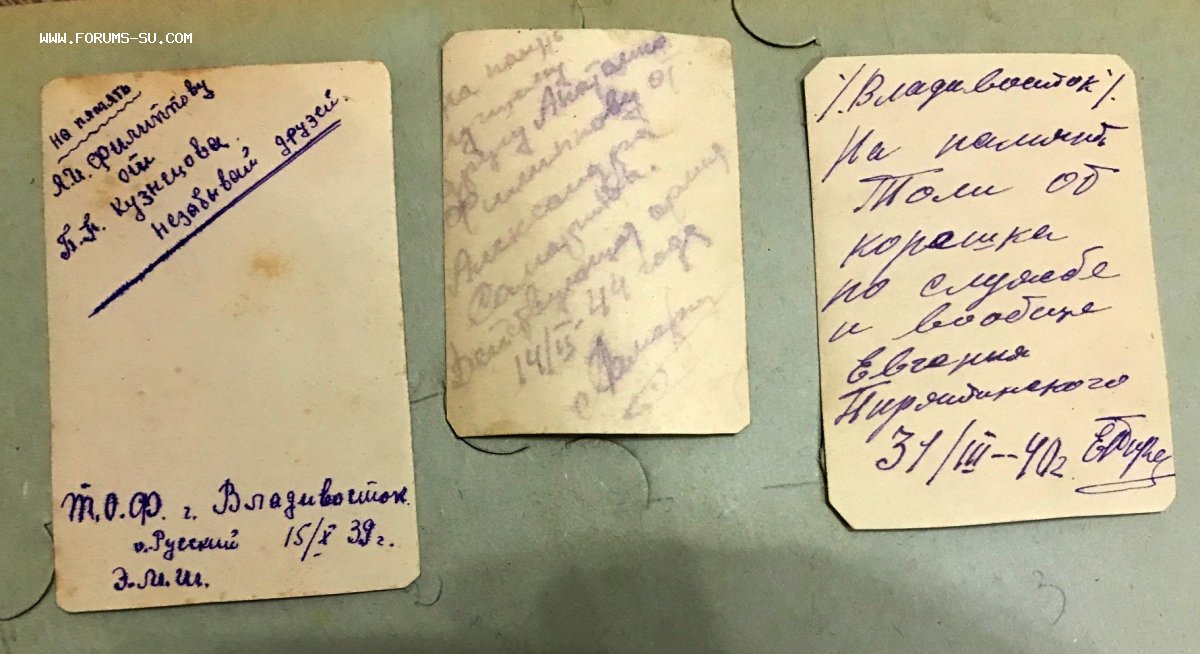 WWW.FORUMS-SU.COM
на память
А.И. Филиппову
от
П.П. Кузнецова.
незабывай друзей.
Т.О.Ф. г. Владивосток.
о.Русский 15/X 39г.
Э.М.Ш.
на память
лучшему
другу Анатолию
Филиппову от
Александра
Действующая армия
14/II-44 года
/.Владивосток/.
На память
Толи от
корешка
по службе
и вообще
Евгения
Пирятинского
31/III-40г.